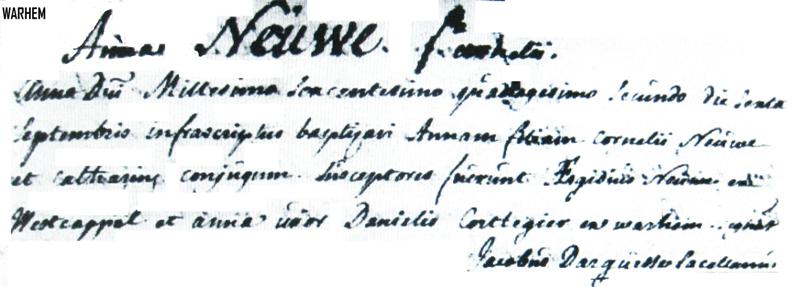 WARHEM
Annae Neüwe. fa cornelii.
Anna Dni Millesimo Sexcentesimo quadragesimo Secundo die Sexta
Septembris infrascriptus baptizavi Annam filiam Cornelii Neüwe
et Catharinę conjugum. Susceptores fuerunt Ægidius Neuwe ex
Westcappel et anna uxor Danielis Cortegier ex warhem
Jacobus Sacellanus